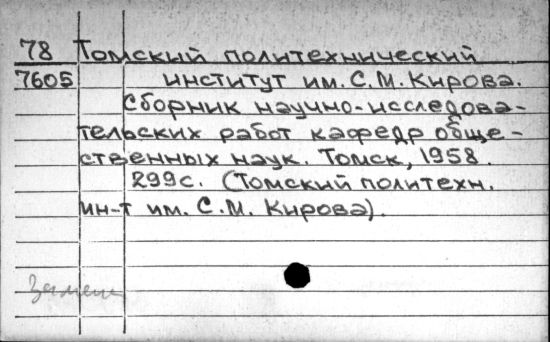 78 Томский политехнический
7605 институт им. С.М. Кирова.
Сборник научно-исследова-
тельских работ кафедр обще-
ственных наук. Томск, 1958.
299с. (Томский политехн.
ин-т им. С.М. Кирова).